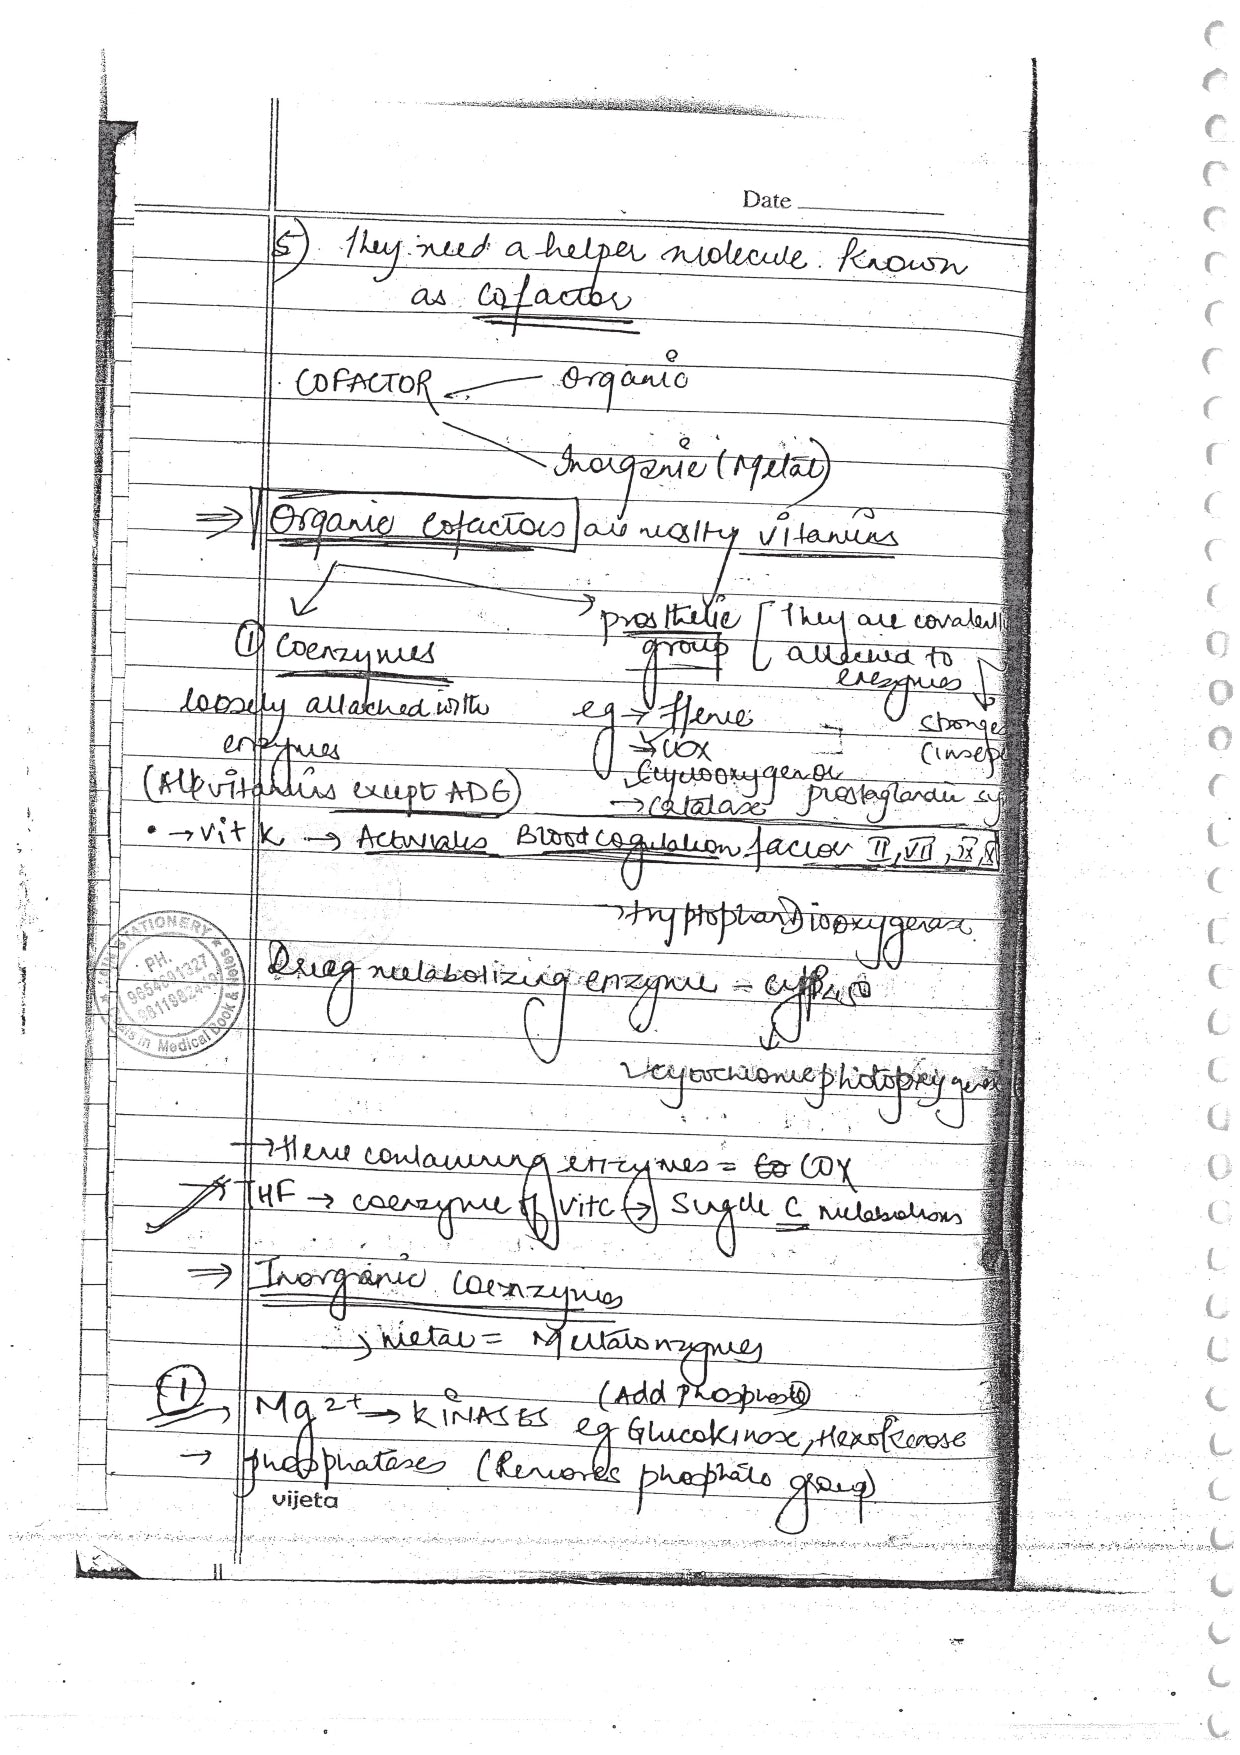 Date
5) They need a helper molecule. Known
as Cofactor
COFACTOR
Organic
Inorganic (Metal)
⇒ Organic Cofactors are mostly vitamins
① Coenzymes
loosely attached with
enzymes
(All vitamins except ADE)
prosthetic group [They are covalentl
attached to
enzymes
stronge
(insep
eg → Heme
→ COX
Cyclooxygenase
→ Catalase prostaglandin sy
• → vit K → Activates Blood Coagulation factor II, VII, IX, X
→ tryptophan Diooxygenase
Drug metabolizing enzyme = cyp450
→ Heme containing enzymes = COX
→ THF → coenzyme of vitc → Single C metabolisms
⇒ Inorganic Coenzymes
→ metal = Mettalonzymes
① Mg 2+ → KINASES (Add Phosphate)
eg Glucokinase, Hexokinase
→ phosphatases (Removes phosphate group)
vijeta
STATIONERY
PH.
9654691327
in Medical book & Notes